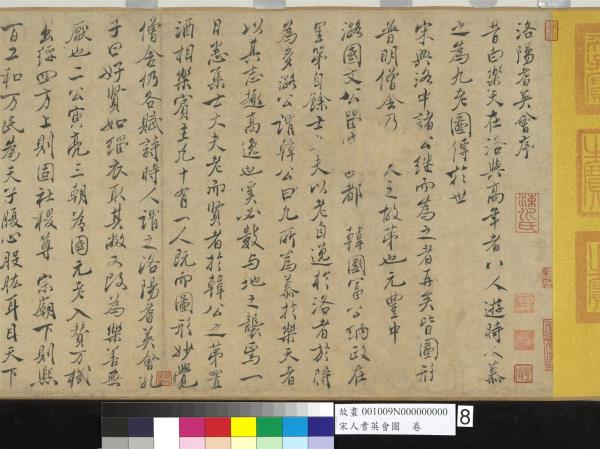 洛陽耆英會序
昔白樂天在洛與高年者八人遊時人慕
之為九老圖傳於世
宋興洛中諸公繼而為之者再矣皆圖形
普明僧舍乃 人之故第也元豐中
潞國文公留守 都 韓國富公納政在
里第自餘士大夫以老自逸於洛者於時
為多潞公謂韓公曰凡所為慕於樂天者
以其志趣高逸也奚必數與地之襲焉一
日悉集士大夫老而賢者於韓公之第置
酒相樂賓主凡十有一人既而圖形妙覺
僧舍仍各賦詩時人謂之洛陽耆英會孔
子曰好賢如緇衣取其敝又改為樂善無
厭也二公寅亮三朝為國元老入贊萬機
出綏四方上則固社稷尊 宗廟下則熙
百工和万民為天子腹心股肱耳目天下
故畫 001009N000000000
宋人耆英會圖 卷
8